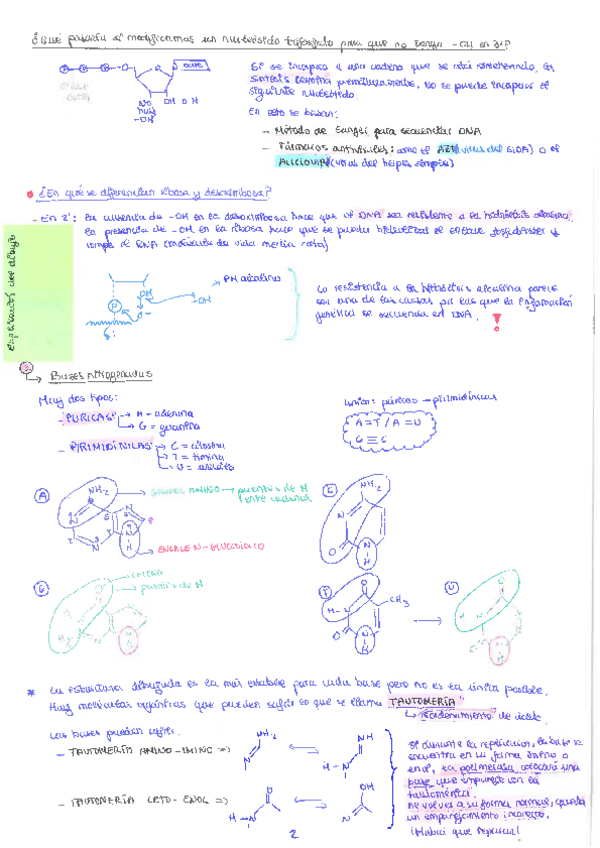 ¿Qué pasaría si modificamos un nucleósido trifosfato para que no tenga -OH en 3'?
Si se incorpora a una cadena que se está sintetizando, la
síntesis termina prematuramente. No se puede incorporar el
siguiente nucleótido.
NO
OH
-OH
En esto se basan:
- Método de Sanger para secuenciar DNA
- Fármacos antivirales: como el AZT (virus del SIDA) o el
ACICLOVIR (virus del herpes simple)
¿En qué se diferencian ribosa y desoxirribosa?
- En 2': la ausencia de -OH en la desoxirribosa hace que el DNA sea resistente a la hidrólisis alcalina.
la presencia de -OH en la ribosa hace que se pueda hidrolizar el enlace fosfodiéster y
rompe el RNA (molécula de vida media corta)
Explicación del dibujo
PH alcalino
OH
-OH
P
O-
La resistencia a la hidrólisis alcalina parece
ser una de las causas por las que la información
genética se secuencia en DNA.
Bases nitrogenadas
Hay dos tipos:
- PÚRICAS
A = adenina
G = guanina
- PIRIMIDÍNICAS
C = citosina
T = timina
U = uracilo
Unión: púricas - pirimidínicas
A=T / A=U
G≡C
A
NH2
GRUPOS AMINO → puentes de H
entre cadenas
ENLACE N-GLUCOSÍDICO
C
NH2
G
puentes de H
T
CH3
U
* La estructura dibujada es la más estable para cada base pero no es la única posible.
Hay moléculas orgánicas que pueden sufrir lo que se llama "TAUTOMERÍA"
Reordenamiento de
Las bases pueden sufrir:
- TAUTOMERÍA AMINO-IMINO ⇒
NH2
NH
H-N
- TAUTOMERÍA CETO-ENOL ⇒
O
OH
Si durante la replicación, la base se
encuentra en su forma imino o
enol, la polimerasa colocará una
base que empareje con la
tautomérica.
Al volver a su forma normal, queda
un emparejamiento incorrecto.
¡Habrá que reparar!
2